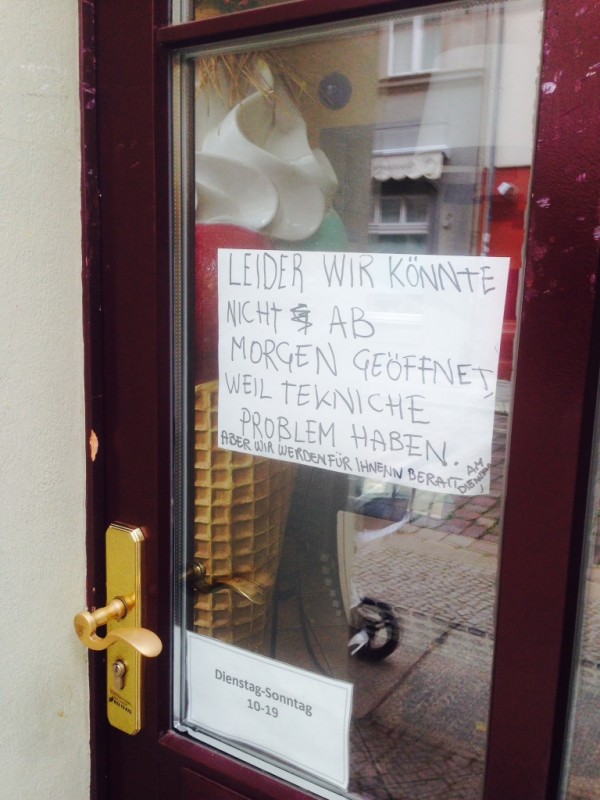 LEIDER WIR KÖNNTE
NICHT AB
MORGEN GEÖFFNET,
WEIL TEKNICHE
PROBLEM HABEN.
ABER WIR WERDEN FÜR IHNENN BERAIT AM
DIENSTAG!
Dienstag-Sonntag
10-19